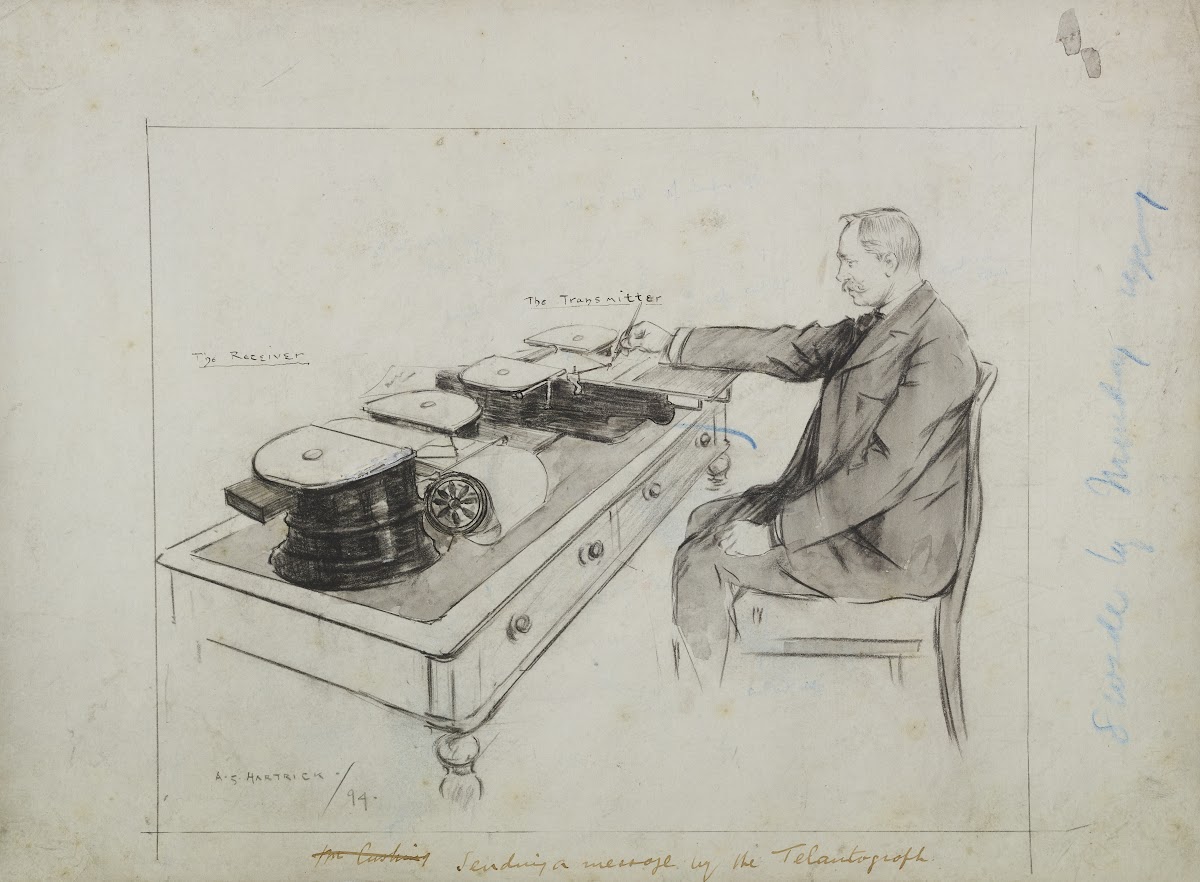 The Transmitter
The Receiver
A.S. HARTRICK / 94.
Sending a message by the Telautograph.
by Monday